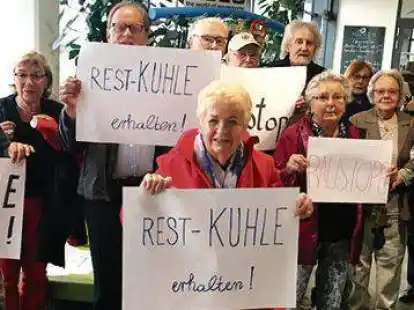 REST-KUHLE
erhalten!
Stop
BAUSTOPP
E
!
REST-KUHLE
erhalten!